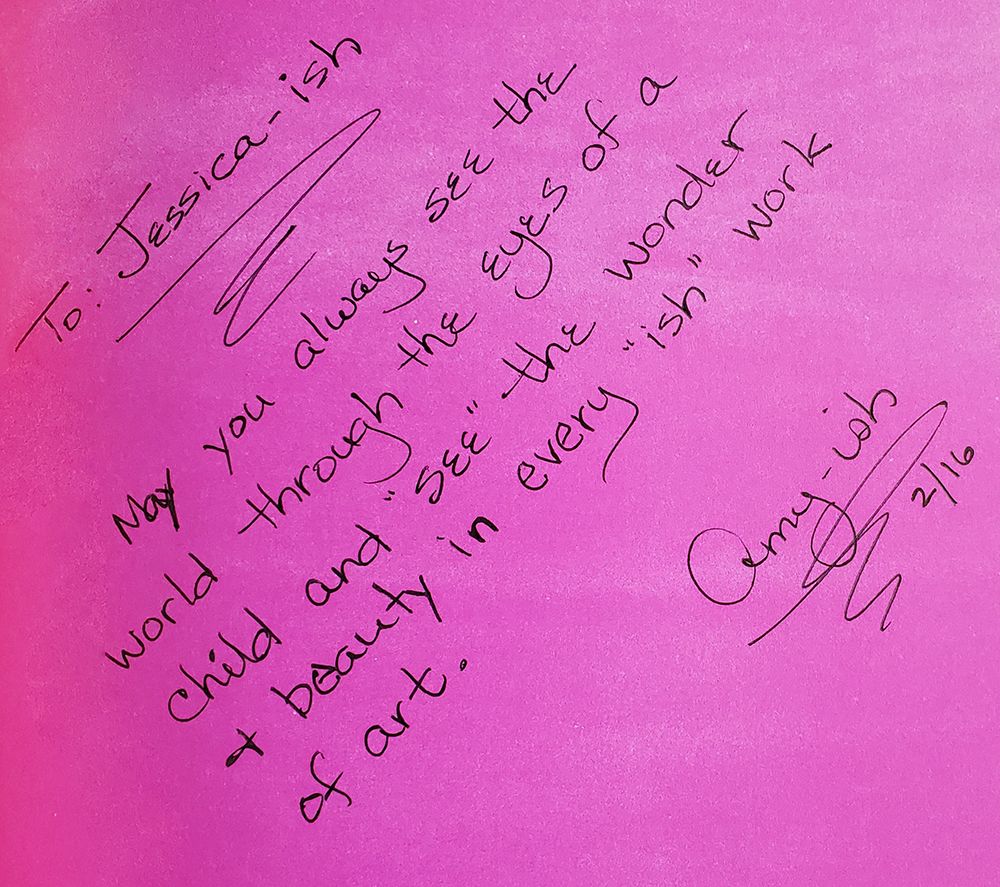 To: Jessica-ish
May you always see the
world through the eyes of a
child and "see" the wonder
+ beauty in every "ish" work
of art.
Amy-ish
2/16